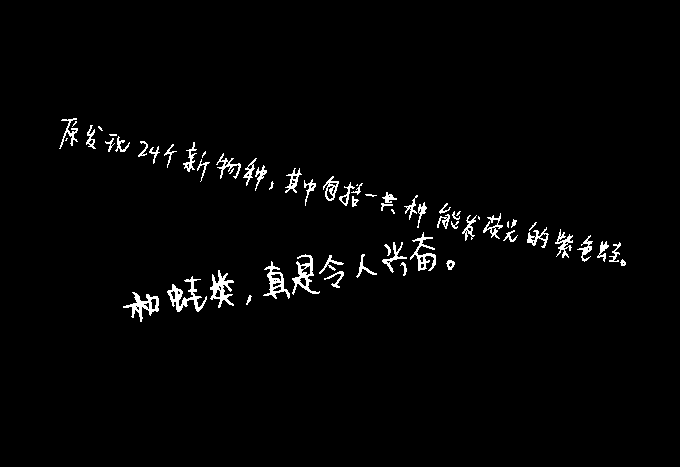 原发现24个新物种，其中包括一共种能发荧光的紫色蛙。
和蛙类，真是令人兴奋。